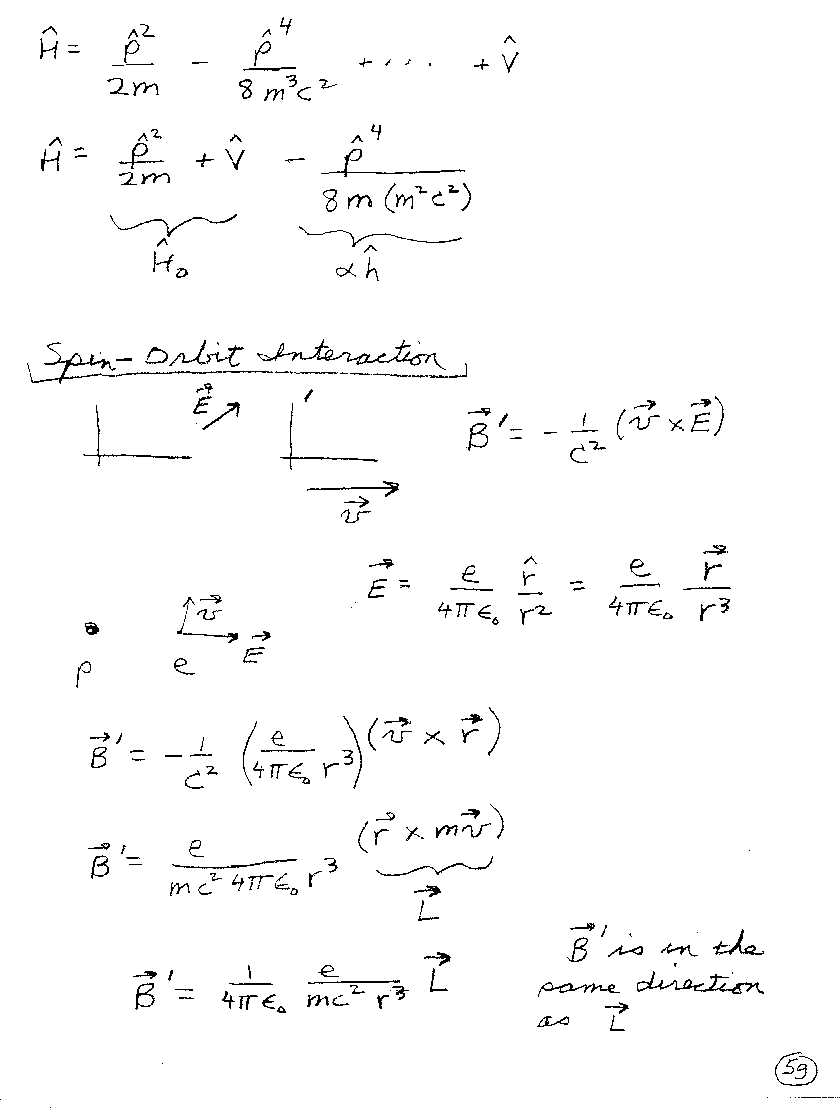 Ĥ = p̂²/2m − p̂⁴/8m³c² + .... + V̂
Ĥ = p̂²/2m + V̂ − p̂⁴/8m(m²c²)
Ĥ₀ αĥ
Spin-Orbit Interaction
E⃗ ′ B⃗′ = − 1/c² (v⃗ × E⃗)
v⃗
E⃗ = e/4πϵ₀ r̂/r² = e/4πϵ₀ r⃗/r³
v⃗
E⃗
p e
B⃗′ = − 1/c² (e/4πϵ₀ r³)(v⃗ × r⃗)
B⃗′ = e/mc² 4πϵ₀ r³ (r⃗ × mv⃗)
L⃗
B⃗′ = 1/4πϵ₀ e/mc² r³ L⃗
B⃗′ is in the
same direction
as L⃗
59